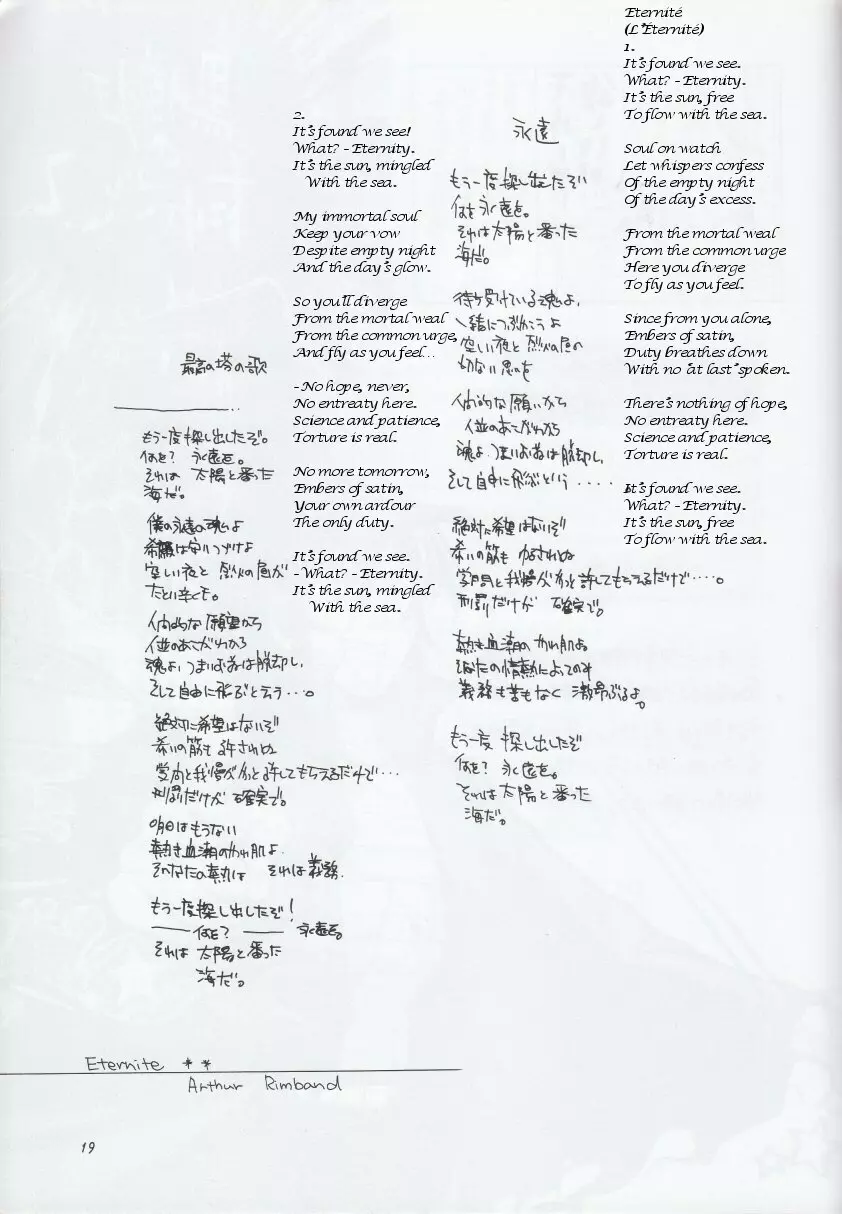 Eternité
(L'Éternité)
1.
It's found we see.
What? - Eternity.
It's the sun, free
To flow with the sea.
Soul on watch
Let whispers confess
Of the empty night
Of the day's excess.
From the mortal weal
From the common urge
Here you diverge
To fly as you feel.
Since from you alone,
Embers of satin,
Duty breathes down
With no 'at last' spoken.
There's nothing of hope,
No entreaty here.
Science and patience,
Torture is real.
It's found we see.
What? - Eternity.
It's the sun, free
To flow with the sea.
永遠
もう一度探し出したぞ
何を永遠を。
それは太陽と番った
海だ。
待ち受けている魂よ、
一緒につぶやこうよ
空しい夜と烈火の昼の
切ない思いを
人間的な願いから
人並のあこがれから
魂よ、つまりお前は脱却し、
そして自由に飛ぶという‥‥
絶対に希望はないぞ
希いの筋も 許されぬ
学問と我慢がやっと許してもらえるだけで‥‥。
刑罰だけが 確実で。
熱き血潮の やわ肌よ
そなたの情熱によってのみ
義務も苦もなく 激昂ぶるよ。
もう一度 探し出したぞ
何を? 永遠を。
それは太陽と番った
海だ。
2.
It's found we see!
What? - Eternity.
It's the sun, mingled
With the sea.
My immortal soul
Keep your vow
Despite empty night
And the day's glow.
So you'll diverge
From the mortal weal
From the common urge,
And fly as you feel...
- No hope, never,
No entreaty here.
Science and patience,
Torture is real.
No more tomorrow,
Embers of satin,
Your own ardour
The only duty.
It's found we see.
- What? - Eternity.
It's the sun, mingled
With the sea.
最高の塔の歌
もう一度探し出したぞ。
何を? 永遠を。
それは 太陽と番った
海だ。
僕の永遠の魂よ
希願は守りつづけよ
空しい夜と 烈火の昼が
たとい辛くも。
人間的な願望から
人並のあこがれから
魂よ、つまりお前は脱却し、
そして自由に飛ぶと云う‥。
絶対に希望はないぞ
希いの筋も許されぬ
学問と我慢がやっと許してもらえるだけで‥
刑罰だけが 確実で。
明日はもうない
熱き血潮のやわ肌よ
そなたの熱は それは義務.
もう一度探し出したぞ!
── 何を? ── 永遠を。
それは 太陽と番った
海だ。
Eternite * *
Arthur Rimband
19